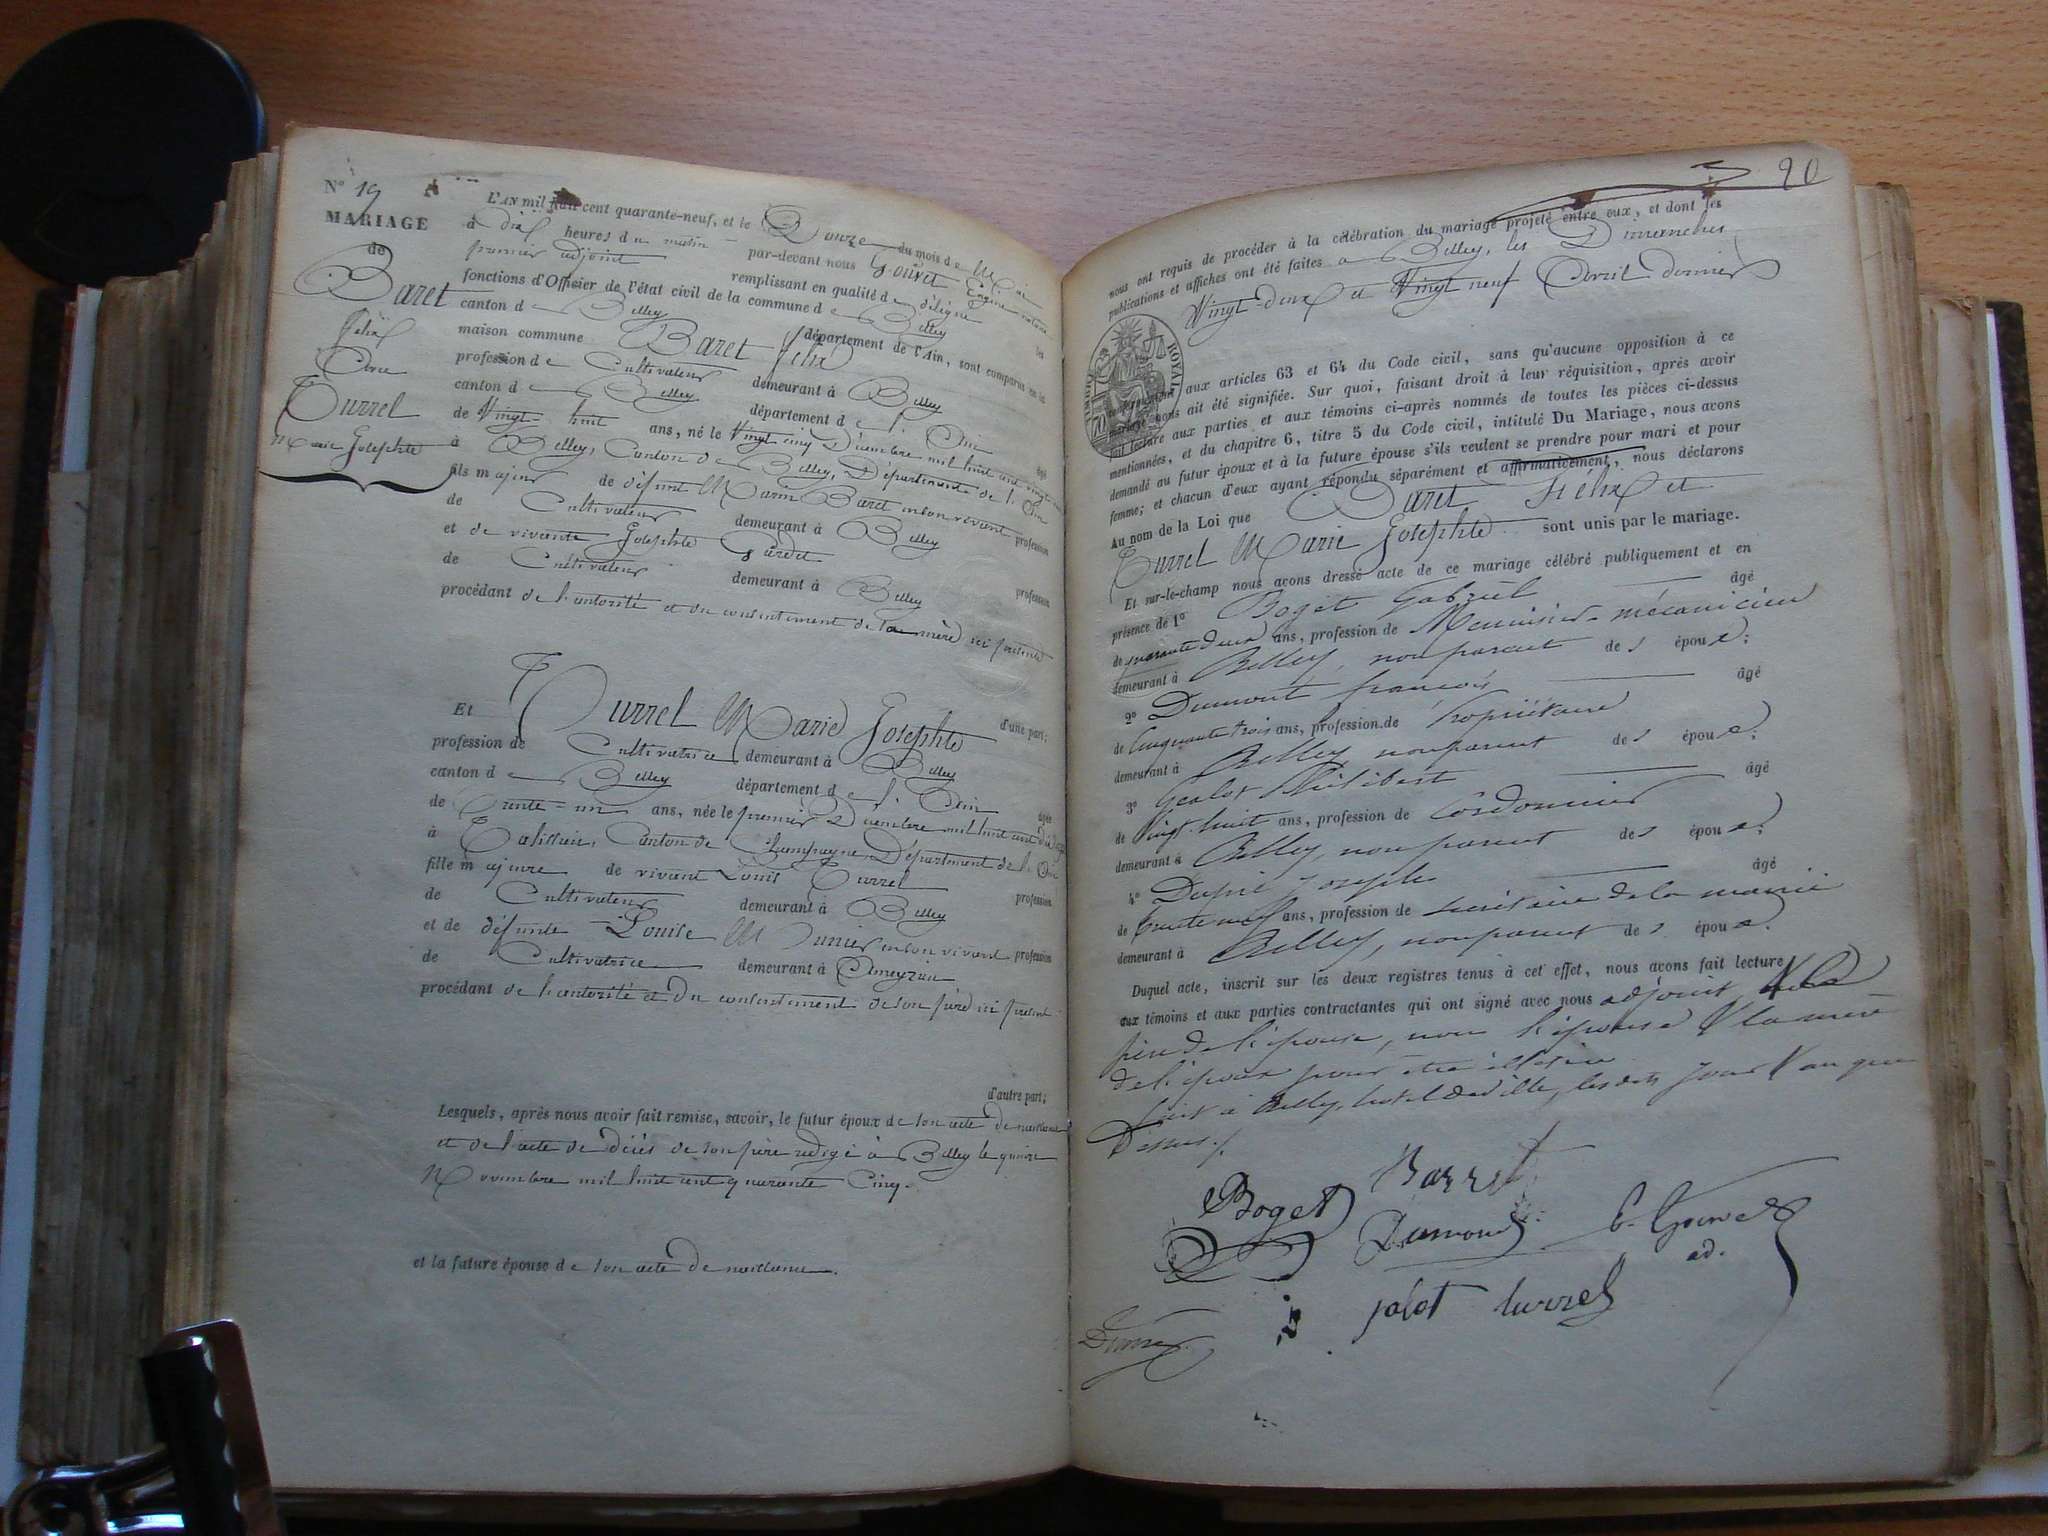 N° 19
MARIAGE
de
Baret
Félix
Avec
Turrel
Marie Josephte
L'AN mil huit cent quarante-neuf, et le Douze du mois de Mai
à dix heures du matin par-devant nous Gouvet Eugène notaire
premier adjoint remplissant en qualité de délégué les
fonctions d'Officier de l'état civil de la commune de Belley
canton de Belley département de l'Ain, sont comparus en la
maison commune Baret Félix
profession de Cultivateur demeurant à Belley
canton de Belley département de l'Ain âgé
de Vingt huit ans, né le Vingt cinq Décembre mil huit cent vingt
à Belley, Canton de Belley, Département de l'Ain
fils majeur de défunt Marin Baret en son vivant profession
de Cultivateur demeurant à Belley
et de vivante Josephte Gardet profession
de Cultivateur demeurant à Belley
procédant de l'autorité et du consentement de sa mère ici présente
d'une part;
Et Turrel Marie Josephte
profession de Cultivatrice demeurant à Belley
canton de Belley département de l'Ain âgée
de Trente-un ans, née le premier Décembre mil huit cent dix sept
à Talissieu, Canton de Champagne, Département de l'Ain
fille majeure de vivant Louis Turrel profession
de Cultivateur demeurant à Belley
et de défunte Louise Munier en son vivant profession
de Cultivatrice demeurant à Ameyzieu
procédant de l'autorité et du consentement de son père ici présent
d'autre part;
Lesquels, après nous avoir fait remise, savoir, le futur époux de son acte de naissance
et de l'acte de décès de son père rédigé à Belley le quinze
Novembre mil huit cent quarante Cinq.
et la future épouse de son acte de naissance.
20
nous ont requis de procéder à la célébration du mariage projeté entre eux, et dont les
publications et affiches ont été faites à Belley, les Dimanches
Vingt-deux et Vingt neuf Avril dernier
TIMBRE ROYAL
70
conformément aux articles 63 et 64 du Code civil, sans qu'aucune opposition à ce
mariage nous ait été signifiée. Sur quoi, faisant droit à leur réquisition, après avoir
fait lecture aux parties et aux témoins ci-après nommés de toutes les pièces ci-dessus
mentionnées, et du chapitre 6, titre 5 du Code civil, intitulé Du Mariage, nous avons
demandé au futur époux et à la future épouse s'ils veulent se prendre pour mari et pour
femme; et chacun d'eux ayant répondu séparément et affirmativement, nous déclarons
Au nom de la Loi que Baret Félix et
Turrel Marie Josephte sont unis par le mariage.
Et sur-le-champ nous avons dressé acte de ce mariage célébré publiquement et en
présence de 1° Boget Gabriel âgé
de quarante deux ans, profession de Menuisier-mécanicien
demeurant à Belley, non parent des épouse;
2° Dumont françois âgé
de Cinquante trois ans, profession de Propriétaire
demeurant à Belley, non parent des épouse;
3° Jalot Philibert âgé
de Vingt-huit ans, profession de Cordonnier
demeurant à Belley, non parent des épouse;
4° Dupré Joseph âgé
de trente neuf ans, profession de secrétaire de la mairie
demeurant à Belley, non parent des épouse.
Duquel acte, inscrit sur les deux registres tenus à cet effet, nous avons fait lecture
aux témoins et aux parties contractantes qui ont signé avec nous adjoint, & le
père de l'épouse, non l'épouse & la mère
de l'époux pour être illétrées
fait à Belley, hotel de ville, les dits jour & an que
Dessus ./.
Barret
Boget
Dumont
E. Gouvet
ad.
jalot
turrel
Dupré